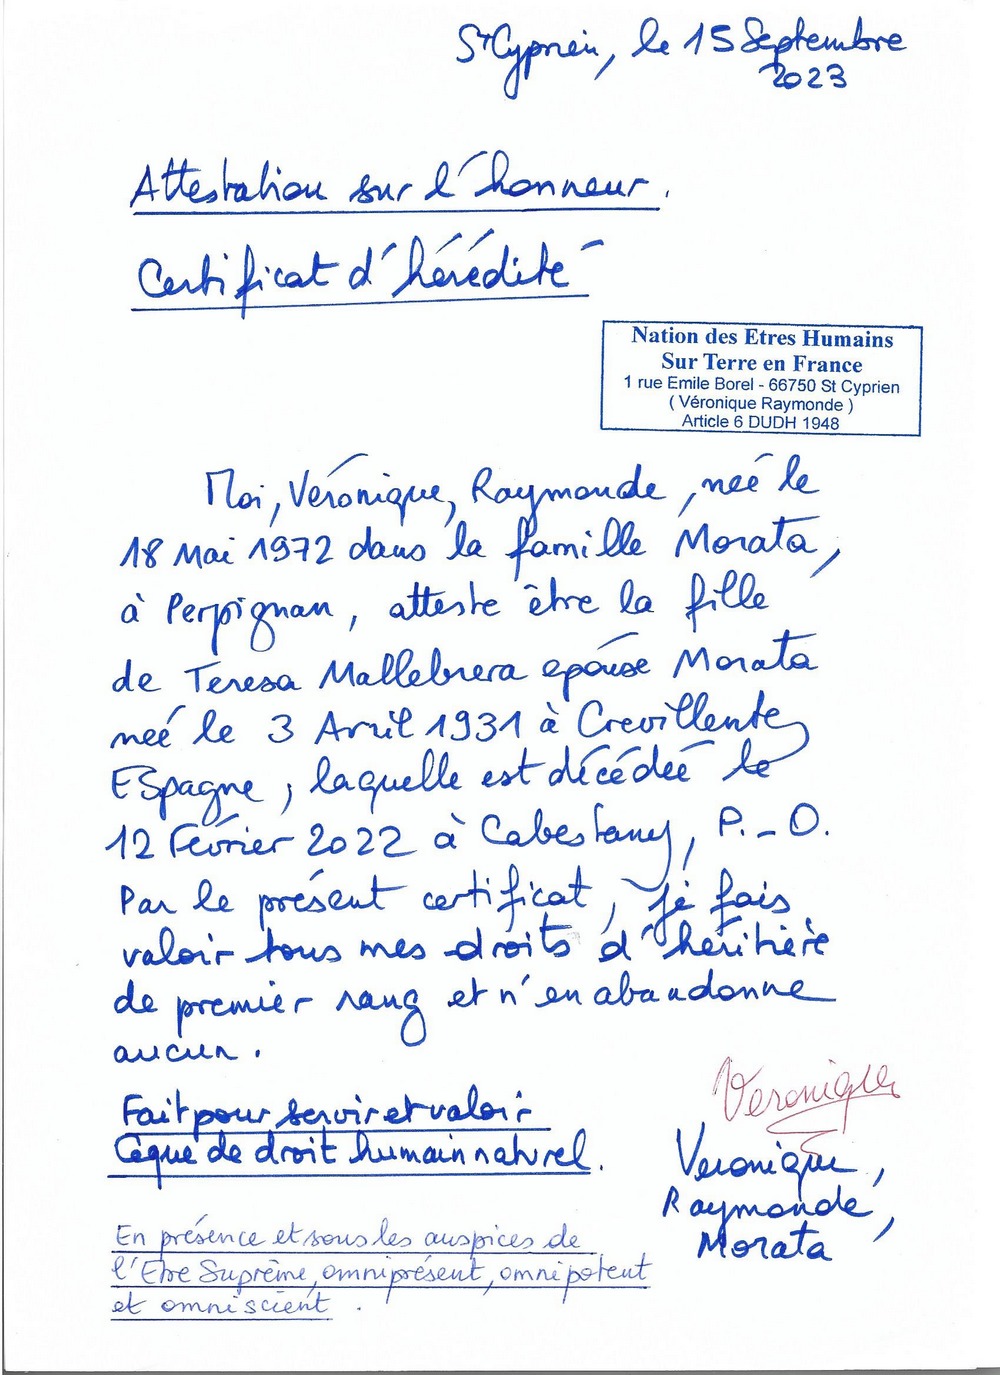 St Cyprien, le 15 Septembre
2023
Attestation sur l'honneur.
Certificat d'hérédité
Nation des Etres Humains
Sur Terre en France
1 rue Emile Borel - 66750 St Cyprien
( Véronique Raymonde )
Article 6 DUDH 1948
Moi, Véronique, Raymonde, neé le
18 Mai 1972 dans la famille Morata,
à Perpignan, atteste être la fille
de Teresa Mallebrera epouse Morata
neé le 3 Avril 1931 à Crevillente,
ESpagne, laquelle est décédeé le
12 Février 2022 à Cabestany, P.-O.
Par le présent certificat, je fais
valoir tous mes droits d'héritière
de premier rang et n'en abandonne
aucun.
Fait pour servir et valoir
Ceque de droit humain naturel.
Veronique
Veronique,
Raymonde,
Morata
En présence et sous les auspices de
l'Etre Suprême, omniprésent, omnipotent
et omniscient.